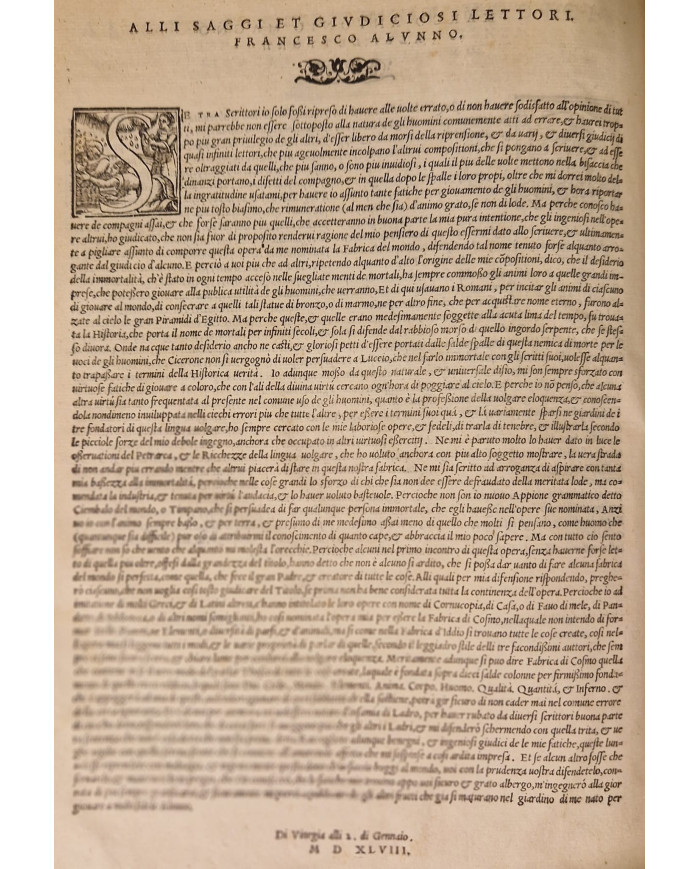 ALLI SAGGI ET GIVDICIOSI LETTORI.
FRANCESCO ALVNNO.
SE TRA Scrittori io solo foßi ripreso di hauere alle uolte errato, o di non hauere sodisfatto all'opinione di tut
ti, mi parrebbe non essere sottoposto alla natura de gli huomini comunemente atti ad errare, & haurei trop=
po piu gran priuilegio de gli altri, d'esser libero da morsi della riprensione, & da uarij, & diuersi giudicij di
quasi infiniti lettori, che piu ageuolmente incolpano l'altrui compositioni, che si pongano a scriuere, & ad esse
re oltraggiati da quelli, che piu sanno, o sono piu inuidiosi, i quali il piu delle uolte mettono nella bisaccia che
dinanzi portano, i difetti del compagno, & in quella dopo le spalle i loro propi, oltre che mi dorrei molto del=
la ingratitudine usatami, per hauere io assunto tante fatiche per giouamento de gli huomini, & hora riportar
ne piu tosto biasimo, che rimuneratione (al men che sia) d'animo grato, se non di lode. Ma perche conosco ha=
uere de compagni assai, & che forse saranno piu quelli, che accetteranno in buona parte la mia pura intentione, che gli ingeniosi nell'ope=
re altrui, ho giudicato, che non sia fuor di proposito renderui ragione del mio pensiero di questo essermi dato allo scriuere, & ultimamen=
te a pigliare assunto di comporre questa opera da me nominata la Fabrica del mondo, difendendo tal nome tenuto forse alquanto arro=
gante dal giudicio d'alcuno. E perciò a uoi piu che ad altri, ripetendo alquanto d'alto l'origine delle mie cōpositioni, dico, che il desiderio
della immortalità, ch'è stato in ogni tempo acceso nelle suegliate menti de mortali, ha sempre commosso gli animi loro a quelle grandi im=
prese, che poteßero giouare alla publica utilità de gli huomini, che uerranno, Et di qui usauano i Romani, per incitar gli animi di ciascuno
di giouare al mondo, di consecrare a quelli tali statue di bronzo, o di marmo, ne per altro fine, che per acquistare nome eterno, furono al=
zate al cielo le gran Piramidi d'Egitto. Ma perche queste, & quelle erano medesimamente soggette alla acuta lima del tempo, fu troua=
ta la Historia, che porta il nome de mortali per infiniti secoli, & sola si difende dal rabbioso morso di quello ingordo serpente, che se stes=
so diuora. Onde nacque tanto desiderio anche ne casti, & gloriosi petti d'essere portati dalle salde spalle di questa nemica di morte per le
uoci de gli huomini, che Cicerone non si uergognò di uoler persuadere a Lucceio, che nel farlo immortale con gli scritti suoi, uolesse alquan=
to trapaßare i termini della Historica uerità. Io adunque mosso da questo naturale, & uniuersale disio, mi son sempre sforzato con
uirtuose fatiche di giouare a coloro, che con l'ali della diuina uirtù cercano ogn'hora di poggiare al cielo. E perche io nō pensò, che alcuna
altra uirtù sia tanto frequentata al presente nel comune uso de gli huomini, quanto è la professione della uolgare eloquenza, & conoscen=
dola nondimeno inuiluppata nelli ciechi errori piu che tutte l'altre, per eßere i termini suoi quà, & là uariamente sparsi ne giardini de i
tre fondatori di questa lingua uolgare, ho sempre cercato con le mie laboriose opere, & fedeli, di trarla di tenebre, & illustrarla secondo
le picciole forze del mio debole ingegno, anchora che occupato in altri uirtuosi eßercitij. Ne mi è paruto molto lo hauer dato in luce le
oßeruationi del Petrarca, & le Ricchezze della lingua uolgare, che ho uoluto anchora con piu alto soggetto mostrare, la uera strada
di non andar piu errando mentre che altrui piacerà di stare in questa nostra fabrica. Ne mi sia scritto ad arroganza di aspirare con tanta
mia baßezza alla immortalità, percioche nelle cose grandi lo sforzo di chi che sia non dee essere defraudato della meritata lode, ma co=
mendata la industria, & tenuta per uorsi l'audacia, & lo hauer uoluto basteuole. Percioche non son io nuouo Appione grammatico detto
Ciembalo del mondo, o Timpano, che si persuadea di far qualunque persona immortale, che egli hauesse nell'opere sue nominata, Anzi
uo io con l'animo sempre baßo, & per terra, & presumo di me medesimo aßai meno di quello che molti si pensano, come buomo che
(quantunque sia difficile) pur oso di attribuirmi il conoscimento di quanto cape, & abbraccia il mio poco sapere. Ma con tutto cio sento
soffiare non so che uento che alquanto mi molesta l'orecchie. Percioche alcuni nel primo incontro di questa opera, senza hauerne forse let=
to di quella piu oltre, offesi dalla grandezza del titolo, hanno detto che non è alcuno si ardito, che si poßa dar uanto di fare alcuna fabrica
del mondo si perfetta, come quella, che fece il gran Padre, & creatore di tutte le cose. Alli quali per mia difensione rispondendo, preghe=
rò ciascuno, che non uoglia così tosto giudicare del Titolo, se prima non ha bene considerata tutta la continenza dell'opera. Percioche io ad
imitatione di molti Greci, & di Latini altresi, c'hanno intitolato le loro opere con nome di Cornucopia, di Casa, o di Fauo di mele, di Pan=
di altri nomi somiglianti, ho così nominata l'opera mia per eßere la Fabrica di Cosmo, nella quale non intendo di for=
ma si come nella Fabrica d'Iddio si trouano tutte le cose create, così nel=
secondo il leggiadro stile delli tre facondißimi auttori, che sem
eloquenza. Meritamente adunque si puo dire Fabrica di Cosmo quella
laquale è fondata sopra dieci salde colonne per firmißimo fonda=
Elementi, Anima, Corpo, Huomo, Qualità, Quantità, & Inferno. &
potrà gir sicuro di non cader mai nel comune errore
l'infamia di Ladro, per hauer rubato da diuersi scrittori buona parte
gli altri i Ladri, & mi difenderò schermendo con quella trita, & ue
adunque benegni, & ingeniosi giudici de le mie fatiche, queste lun=
che mi sospinse a così ardita impresa. Et se alcun altro fosse che
hoggi al mondo, uoi con la prudenza uostra difendetelo, con=
appo uoi sicuro & grato albergo, m'ingegnerò alla gior
de gli altri frutti che gia si maturano nel giardino di me nato per
Di Vinegia alli 2. di Gennaio.
M D XLVIII.